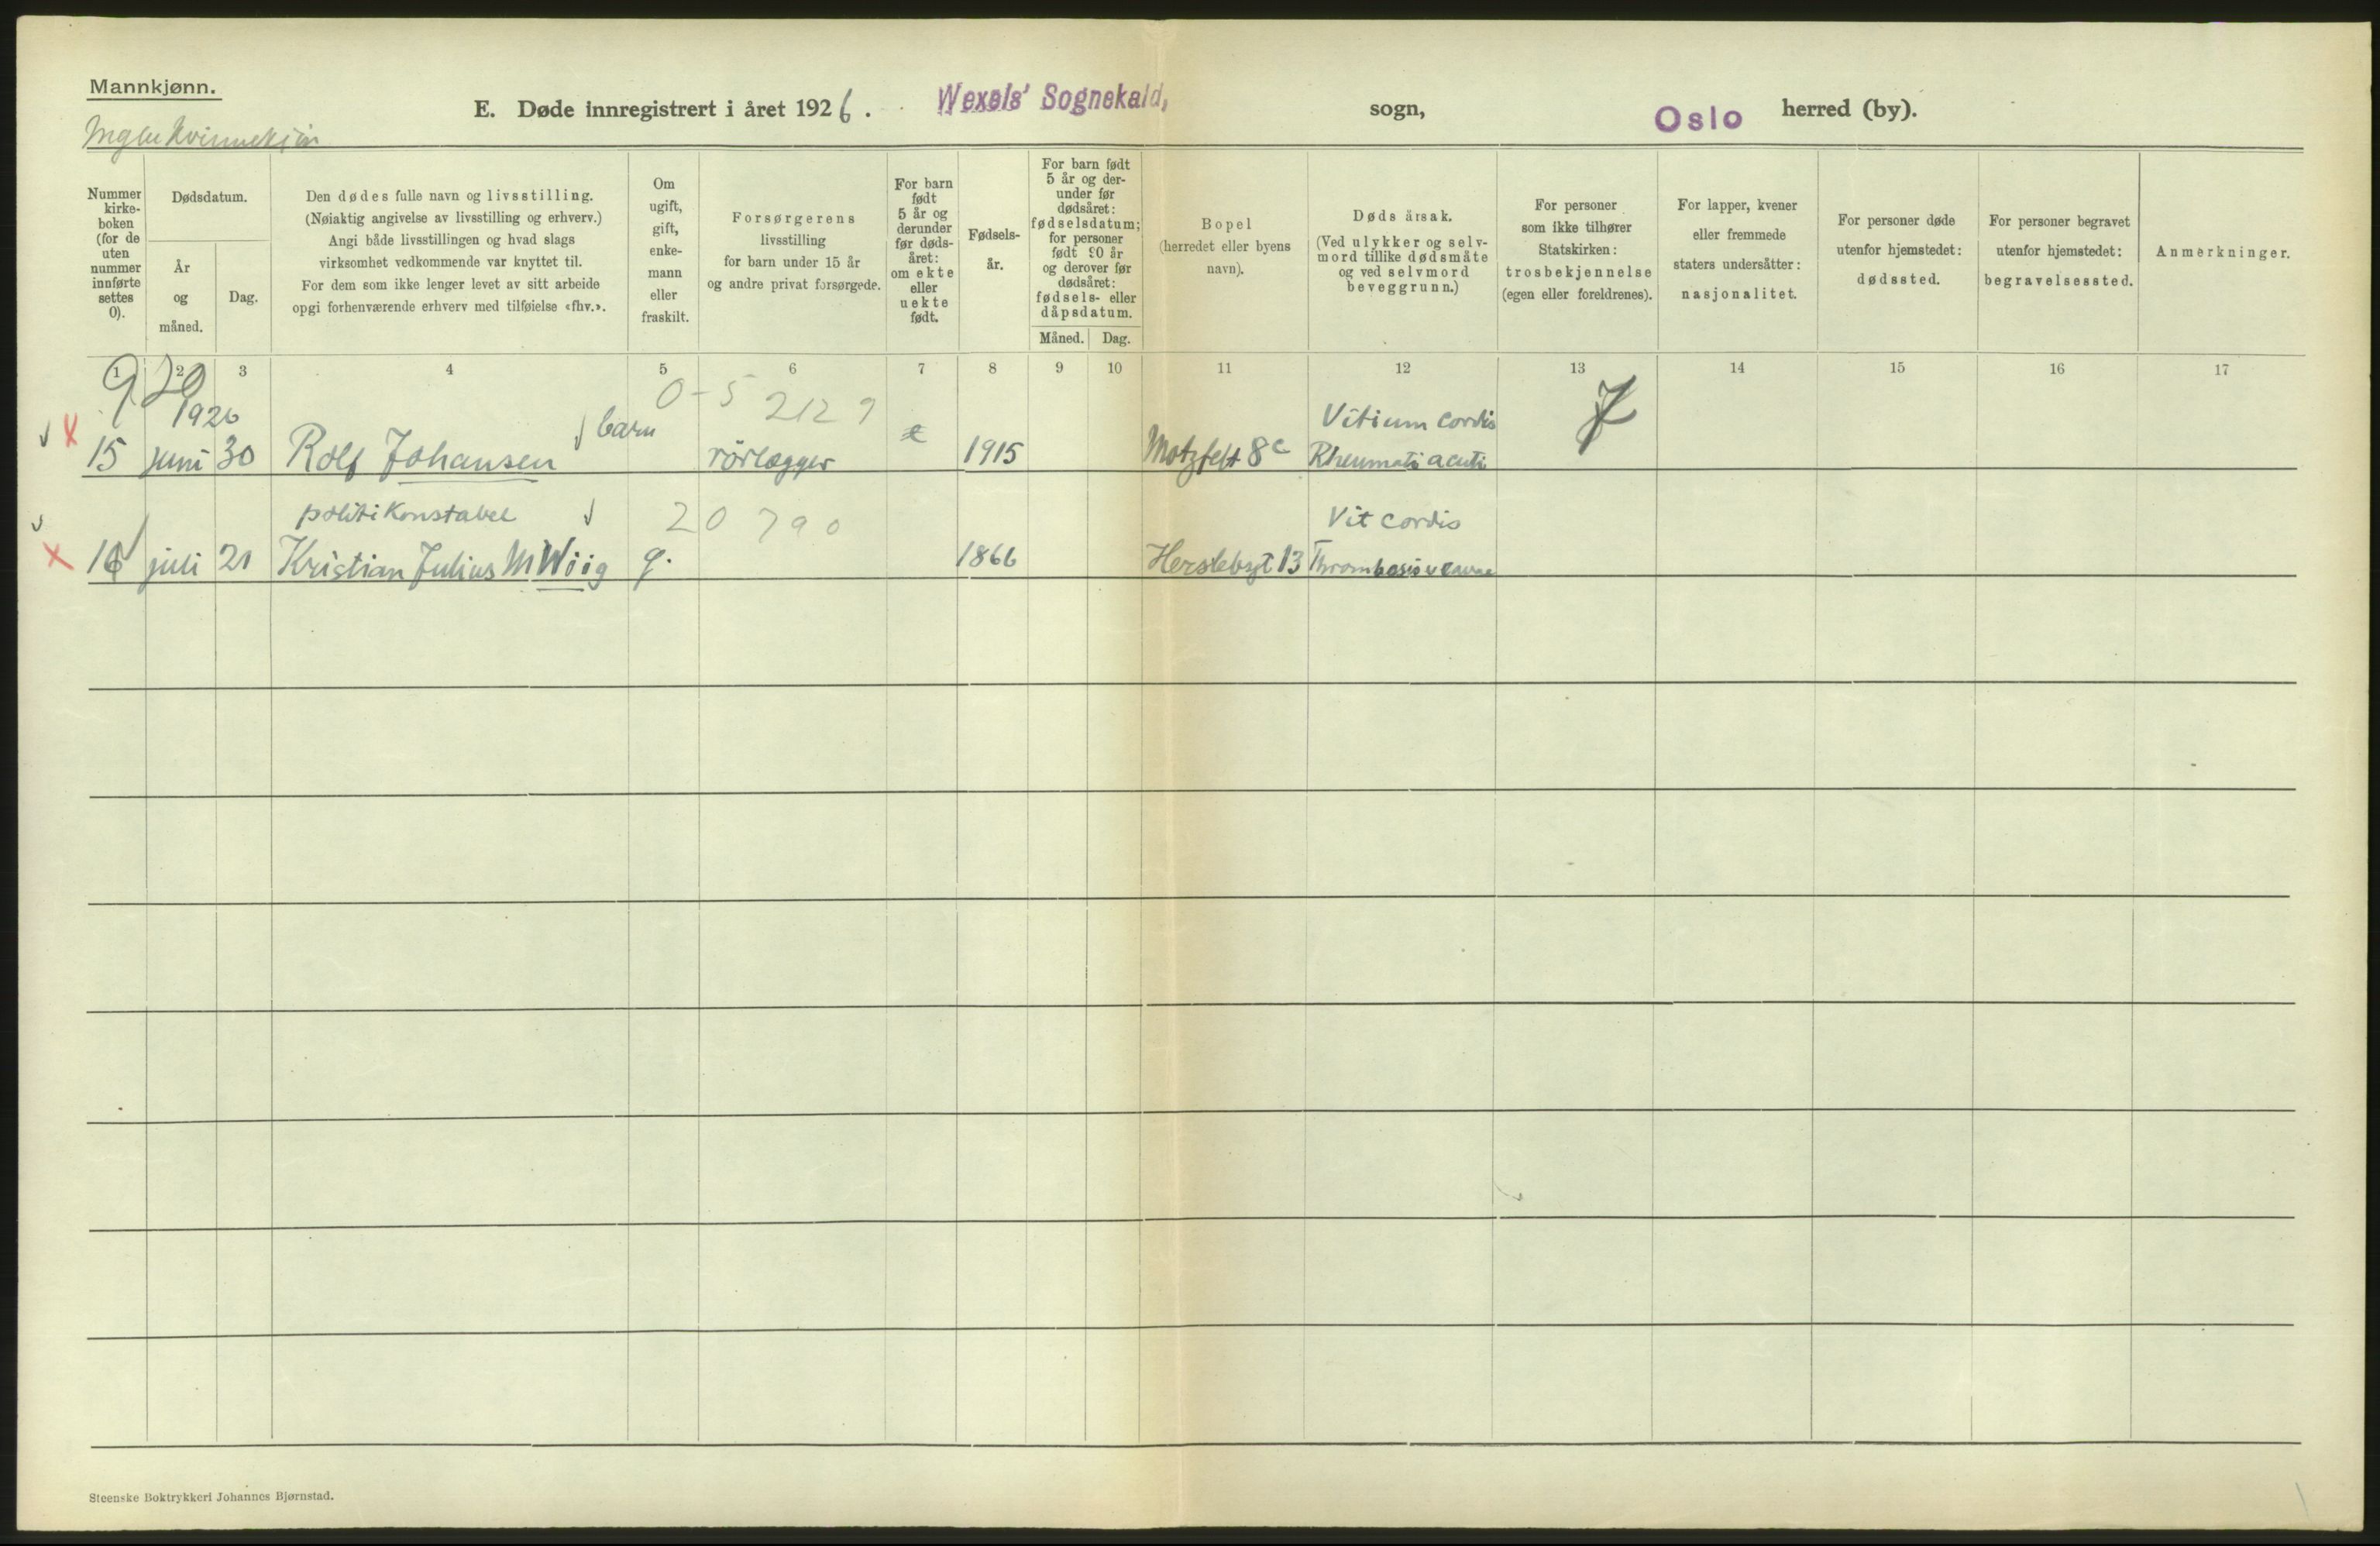 Mannkjønn.
E. Døde innregistrert i året 1926. Wexels' Sognekald, sogn, Oslo herred (by).
Nummer kirke-boken (for de uten nummer innførte settes 0).
Dødsdatum.
År og måned.
Dag.
Den dødes fulle navn og livsstilling.
(Nøiaktig angivelse av livsstilling og erhverv.)
Angi både livsstillingen og hvad slags
virksomhet vedkommende var knyttet til.
For dem som ikke lenger levet av sitt arbeide
opgi forhenværende erhverv med tilføielse «fhv.».
Om
ugift,
gift,
enke-
mann
eller
fraskilt.
Forsørgerens
livsstilling
for barn under 15 år
og andre privat forsørgede.
For barn
født
5 år og
derunder
før døds-
året:
om ekte
eller
uekte
født.
Fødsels-
år.
For barn født
5 år og der-
under før
dødsåret:
fødselsdatum;
for personer
født 90 år
og derover før
dødsåret:
fødsels- eller
dåpsdatum.
Måned. Dag.
Bopel
(herredet eller byens
navn).
Dødsårsak.
(Ved ulykker og selv-
mord tillike dødsmåte
og ved selvmord
beveggrunn.)
For personer
som ikke tilhører
Statskirken:
trosbekjennelse
(egen eller foreldrenes).
For lapper, kvener
eller fremmede
staters undersåtter:
nasjonalitet.
For personer døde
utenfor hjemstedet:
dødssted.
For personer begravet
utenfor hjemstedet:
begravelsessted.
Anmerkninger.
1 2 3 4 5 6 7 8 9 10 11 12 13 14 15 16 17
920
0-5 2129
1926 barn Vitium cordis
15 juni 30 Rolf Johansen rörlægger e 1915 Motzfelt 8c Rheumati acuti
politikonstabel 20 790 Vit cordis
16 juli 21 Kristian Julius M Wiig g. 1866 Herslebsgt 13 Thrombosis v cavae
Steenske Boktrykkeri Johannes Bjørnstad.